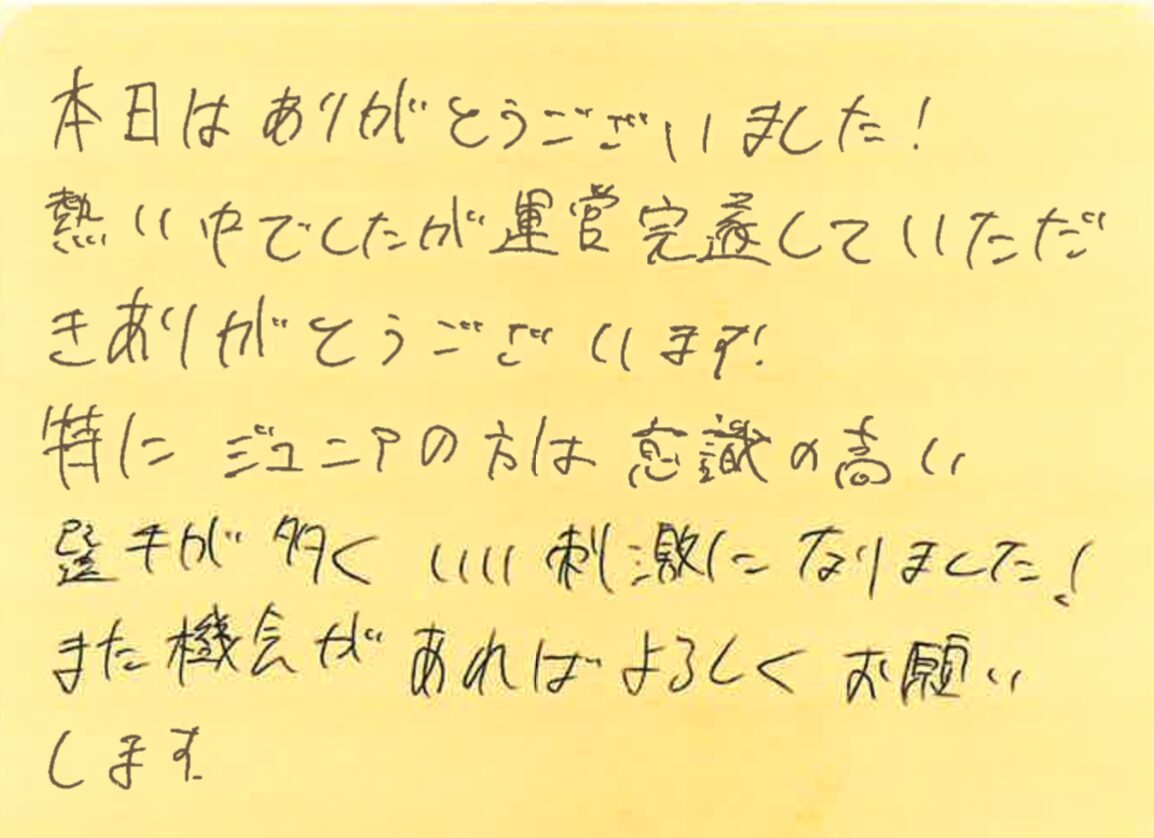 本日はありがとうございました!
熱い中でしたが運営完遂していただ
きありがとうございます!
特にジュニアの方は意識の高い
選手が多くいい刺激になりました!
また機会があればよろしくお願い
します